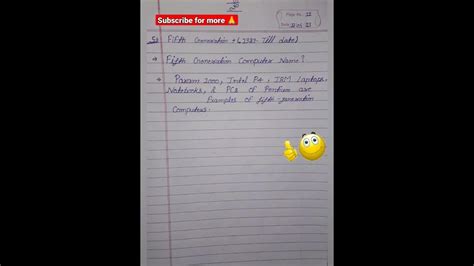 Subscribe for more 🙏
Page No. 12
5) Fifth Generation → (1980- Till date)
→ Fifth Generation Computer Name?
→ Param 2000, Intel P4, IBM Laptops,
Notebooks, & PCs of Pentium are
Examples of fifth-generation
Computers.